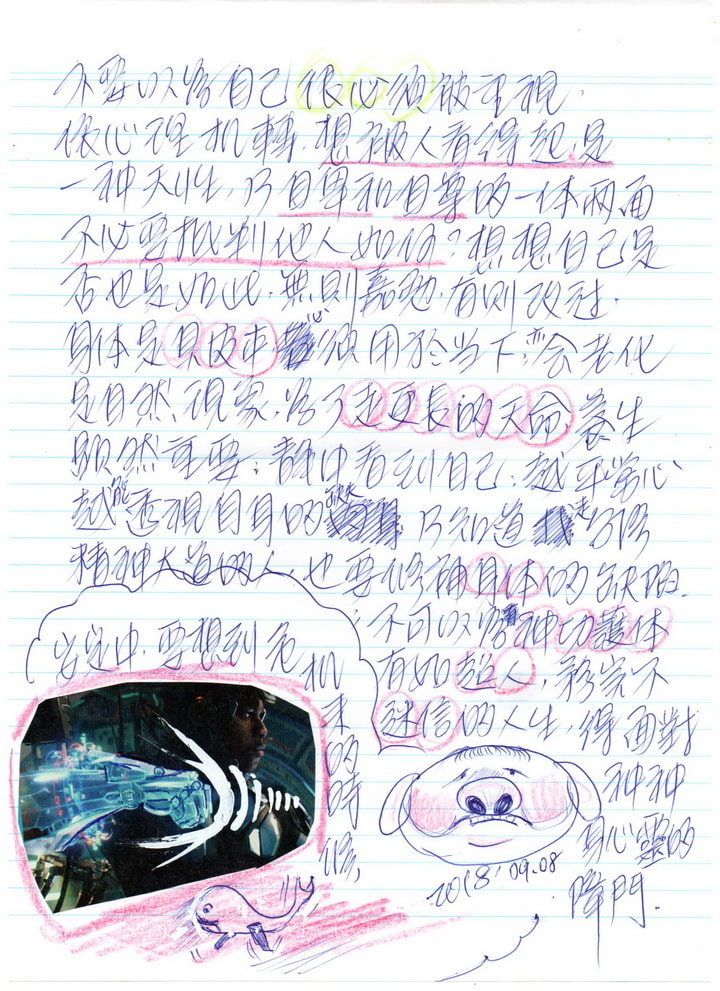 不要以為自己很必須被重視.
依心理机轉.想被人看得起.是
一种天性,乃自卑和自尊的一体兩面
不必要批判他人如何?想想自己是
否也是如此.無則嘉勉.有則改过.
身体是臭皮囊 必須用於当下.会老化
是自然現象.為了走更長的天命.養生
顯然重要;静中看到自己.越平常心
越能透視自身的缺失 乃知道走
精神大道的人.也要修補身体的缺陷.
不可以為有神功護体
有如超人,
迷信的人生.得面對
种种
身心靈的
障門.
安定中.要想到危机
来的時候,
2018.09.08